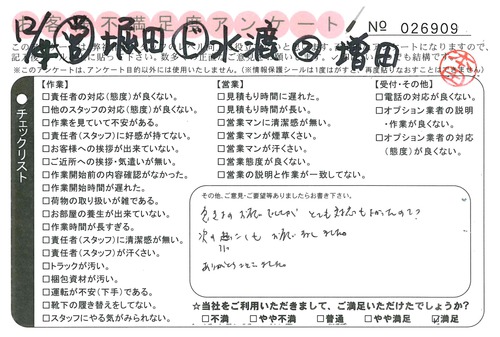 お客様不満足度アンケート
No 026909
12/9 営 堀田 下 水渡 増田
※このアンケートは、アンケート目的以外には使用いたしません。(※情報保護シールは1度はがすと、再度貼りなおすことはできません)
チェックリスト
【作業】
□責任者の対応(態度)が良くない。
□他のスタッフの対応(態度)が良くない。
□作業を見ていて不安がある。
□責任者(スタッフ)に好感が持てない。
□お客様への挨拶が出来ていない。
□ご近所への挨拶・気遣いが無い。
□作業開始前の内容確認がなかった。
□作業開始時間が遅れた。
□荷物の取り扱いが雑である。
□お部屋の養生が出来ていない。
□作業時間が長すぎる。
□責任者(スタッフ)に清潔感が無い。
□責任者(スタッフ)が汗くさい。
□トラックが汚い。
□梱包資材が汚い。
□運転が不安(下手)である。
□靴下の履き替えをしてない。
□スタッフにやる気がみられない。
【営業】
□見積もり時間に遅れた。
□見積もり時間が長い。
□営業マンに清潔感が無い。
□営業マンが煙草くさい。
□営業マンが汗くさい。
□営業態度が良くない。
□営業の説明と作業が一致してない。
【受付・その他】
□電話の対応が良くない。
□オプション業者の説明
・作業が良くない。
□オプション業者の対応
(態度)が良くない。
その他、ご意見・ご要望等ありましたらお書き下さい。
ありがとうございました。
☆当社をご利用いただきまして、ご満足いただけたでしょうか?
□不満 □やや不満 □普通 □やや満足 ☑満足